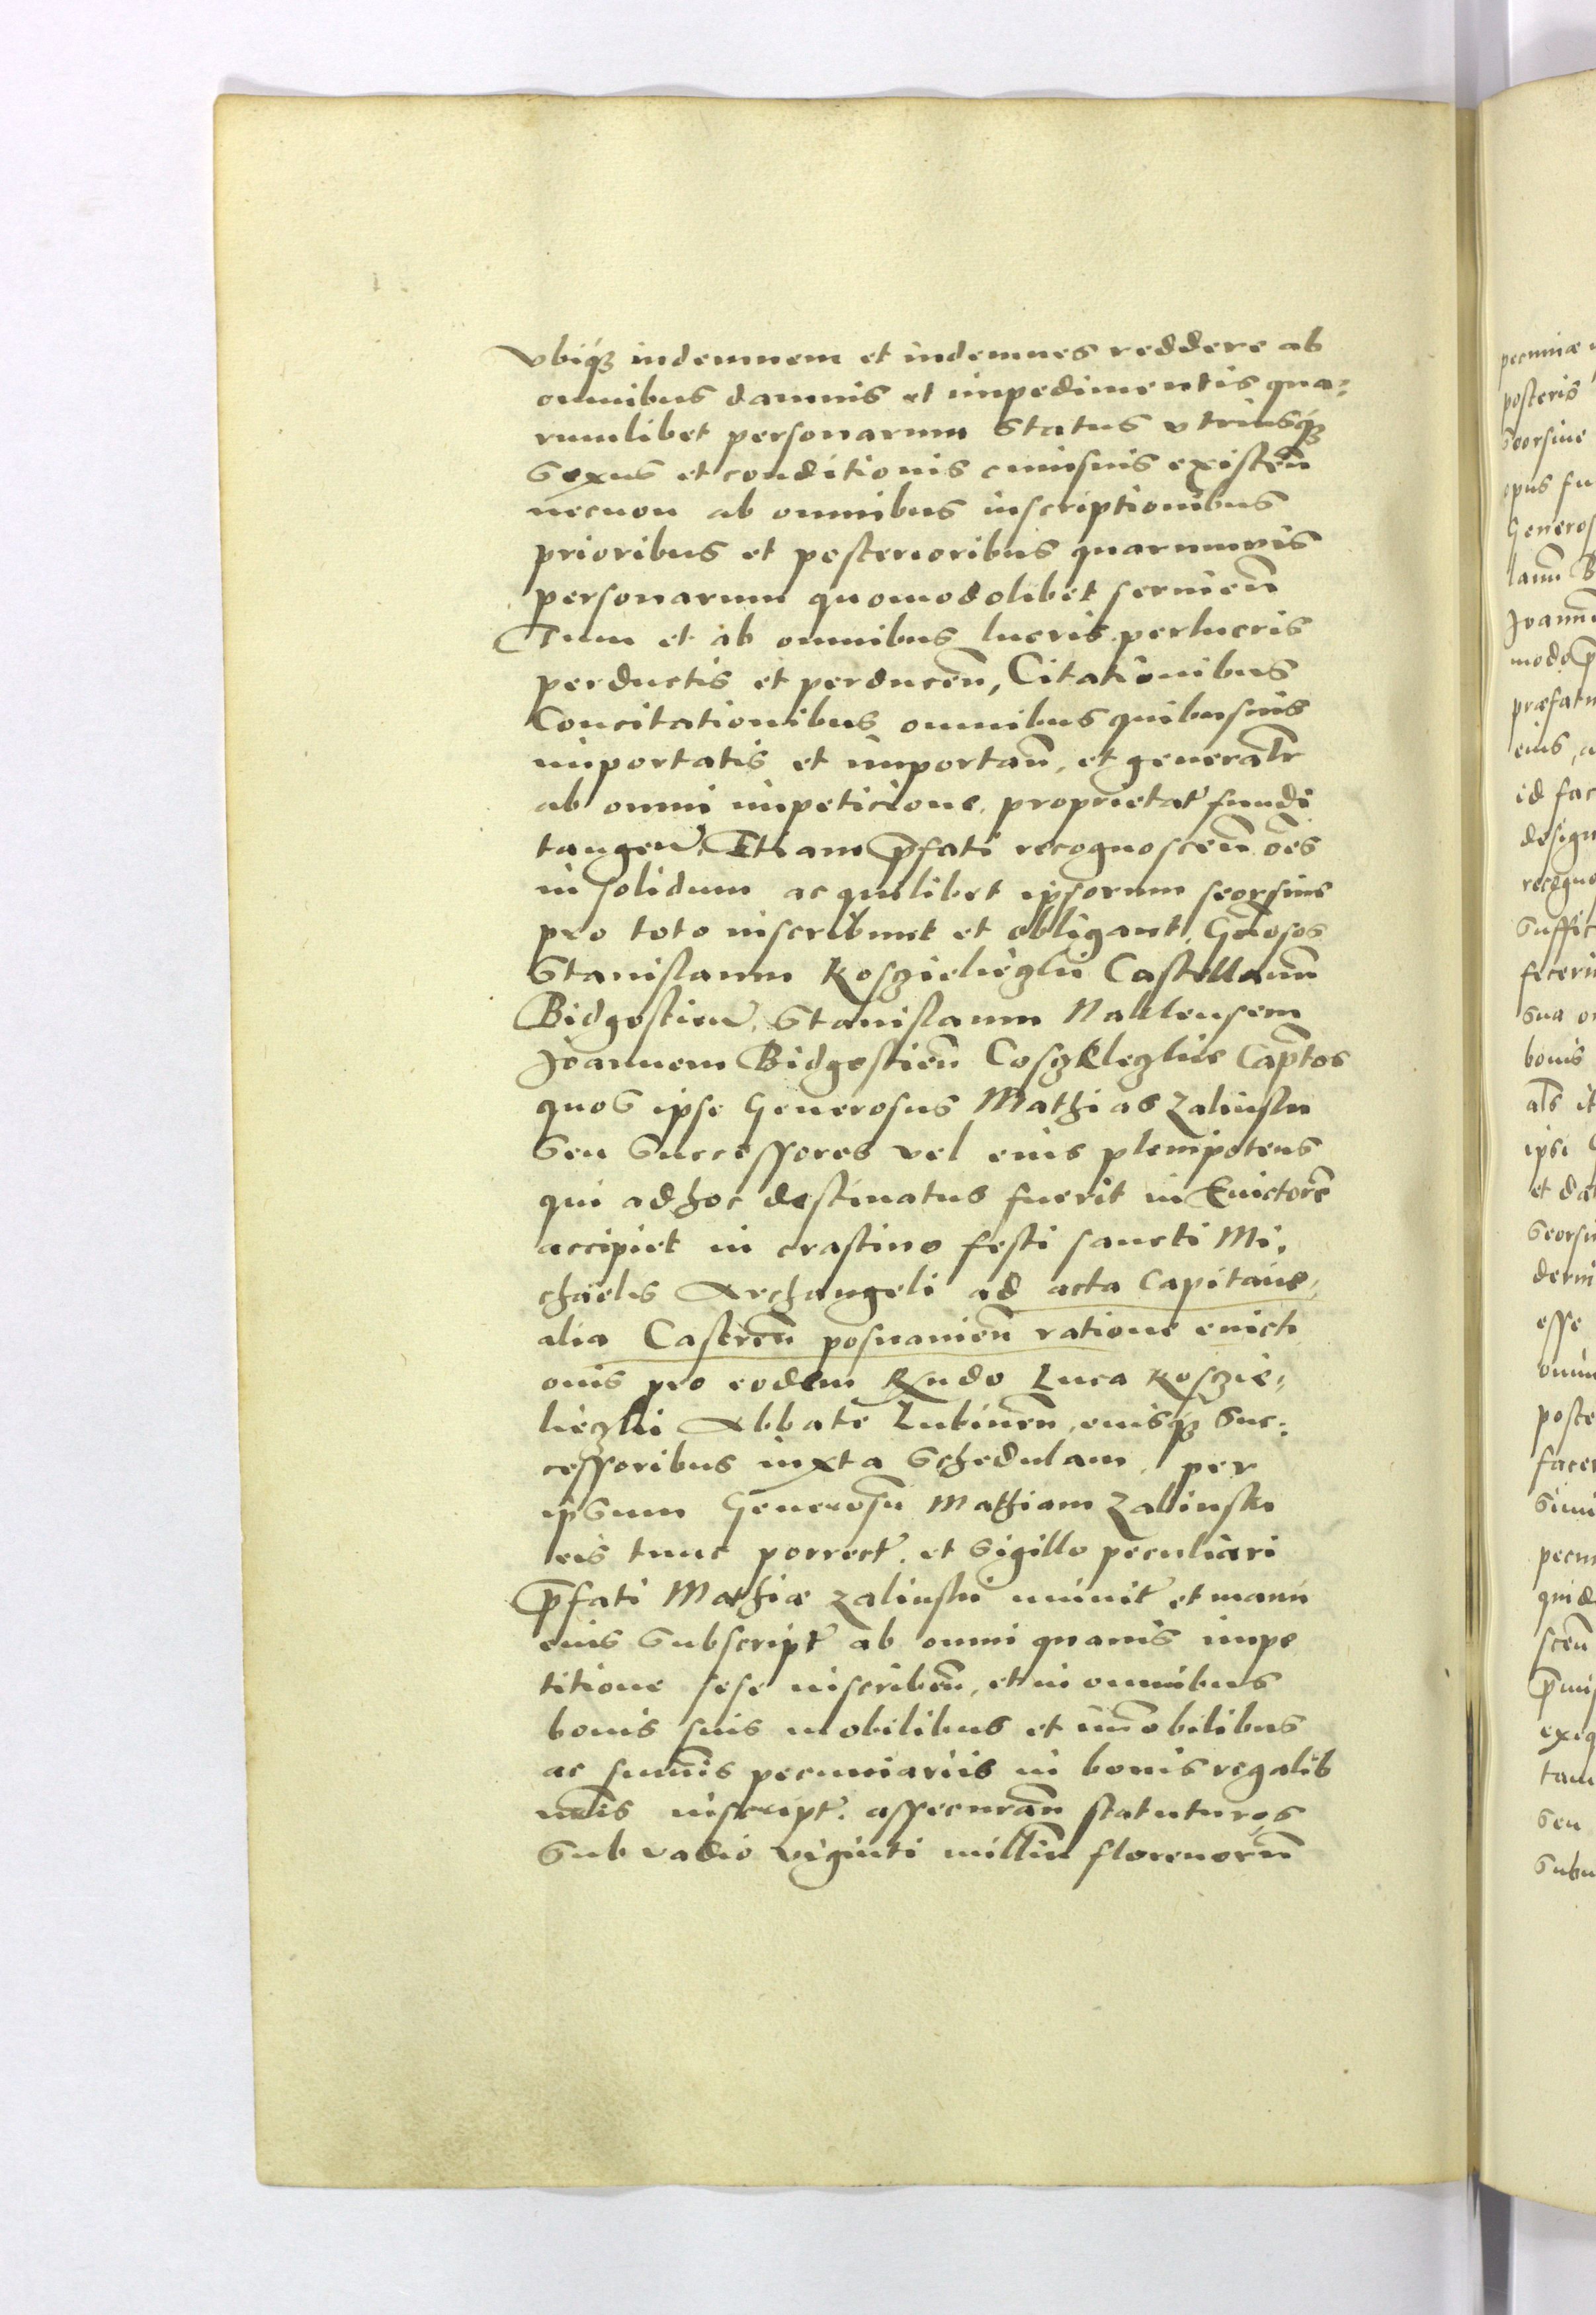 vbiq3 indemnem et indemnes reddere ab
omnibus damnis et impedimentis qua=
rumlibet personarum Status vtriusq3
Sexus et conditionis cuiusuis existen̄
necnon ab omnibus inscriptionibus
prioribus et posterioribus quarumvis
personarum quomodolibet seruien̄
Tum et ab omnibus lucris perlucris
perductis et perducen̄, Citationibus
Concitationibus omnibus quibusuis
importatis et importan̄, et generalr̄
ab omni impeticione. proprietat̄ fundi
tangen̄. Etiam p̄fati recognoscen̄ oēs
in solidum ac quilibet ipsorum seorsiue
pro toto inscribunt et obligant. Gn̄osos
Stanislaum Koszcieliezki Castellanū
Bidgostien̄, Stanislaum Naklensem
Joannem Bidgostien̄ Coszcleczkie Capn̄tos
quos ipse Generosus Mathias Zalinski
Seu Successores vel eius plenipotens
qui adhoc destinatus fuerit in Euictorē
accipiet in crastino festi sancti Mi,
chaelis Archangeli ad acta Capitane,
alia Castren̄ posnanien̄ ratione euicti
onis pro eodem Rn̄do Luca Koszcie=
liezki Abbate Lubinen̄, eiusq3 Suc=
cessoribus iuxta Schedulam per
ipsum Generosū Mathiam Zalinski
eis tunc porrect̄. et Sigillo peculiari
p̄fati Mathiæ Zalinski munit̄ et manu
eius Subscript̄ ab omni quauis impe
titione sese inscriben̄, et in omnibus
bonis suis mobilibus et im̄obilibus
ac sum̄is pecuniariis in bonis regalib
vel̄is inscript̄. assecuran̄ statuturos
Sub vadio viginti millin̄ florenorū